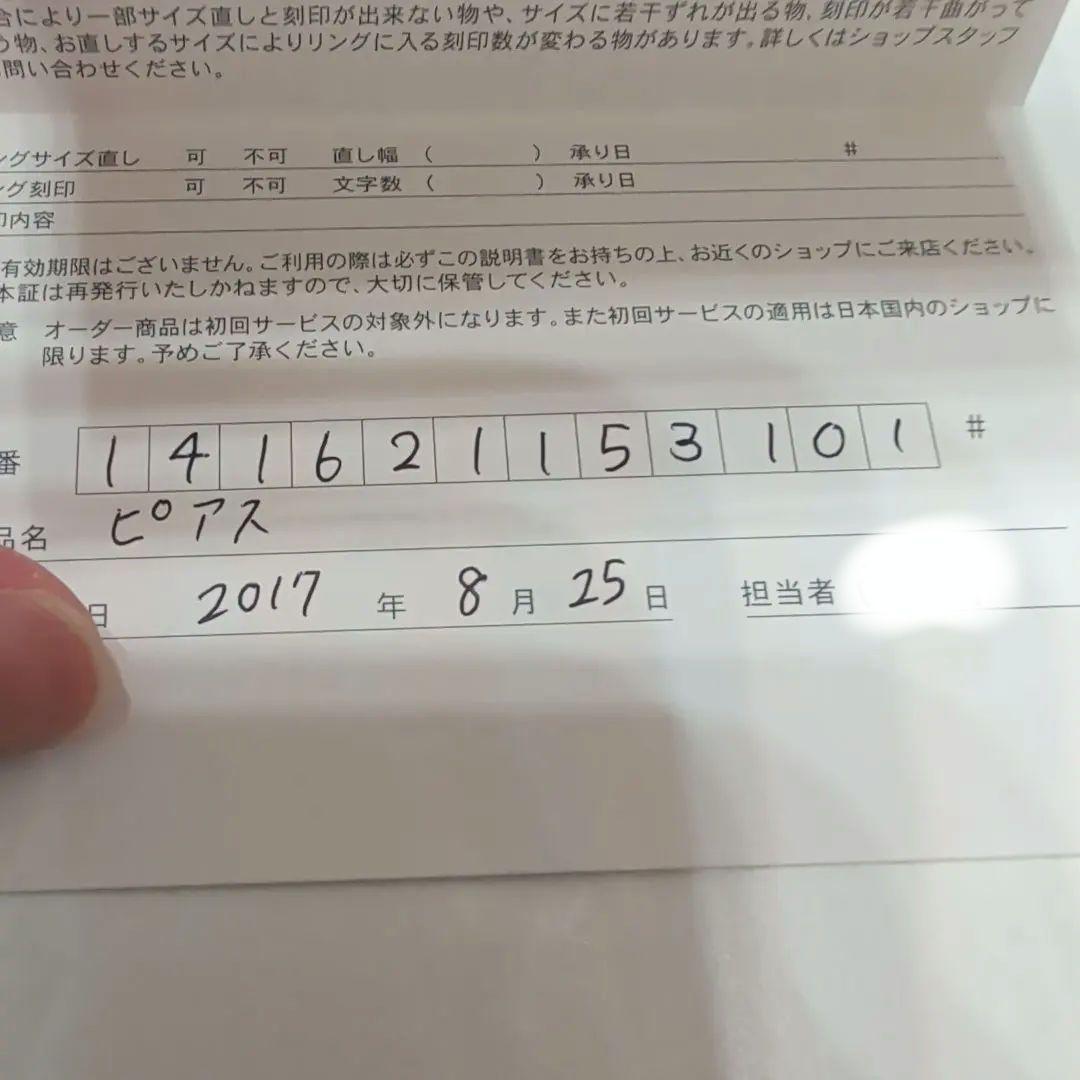 合により一部サイズ直しと刻印が出来ない物や、サイズに若干ずれが出る物、刻印が若干曲がって
う物、お直しするサイズによりリングに入る刻印数が変わる物があります。詳しくはショップスタッフ
問い合わせください。
ングサイズ直し 可 不可 直し幅 ( ) 承り日 #
ング刻印 可 不可 文字数 ( ) 承り日
印内容
有効期限はございません。ご利用の際は必ずこの説明書をお持ちの上、お近くのショップにご来店ください。
本証は再発行いたしかねますので、大切に保管してください。
意 オーダー商品は初回サービスの対象外になります。また初回サービスの適用は日本国内のショップに
限ります。予めご了承ください。
番 1 4 1 6 2 1 1 5 3 1 0 1 #
品名 ピアス
日 2017 年 8 月 25 日 担当者